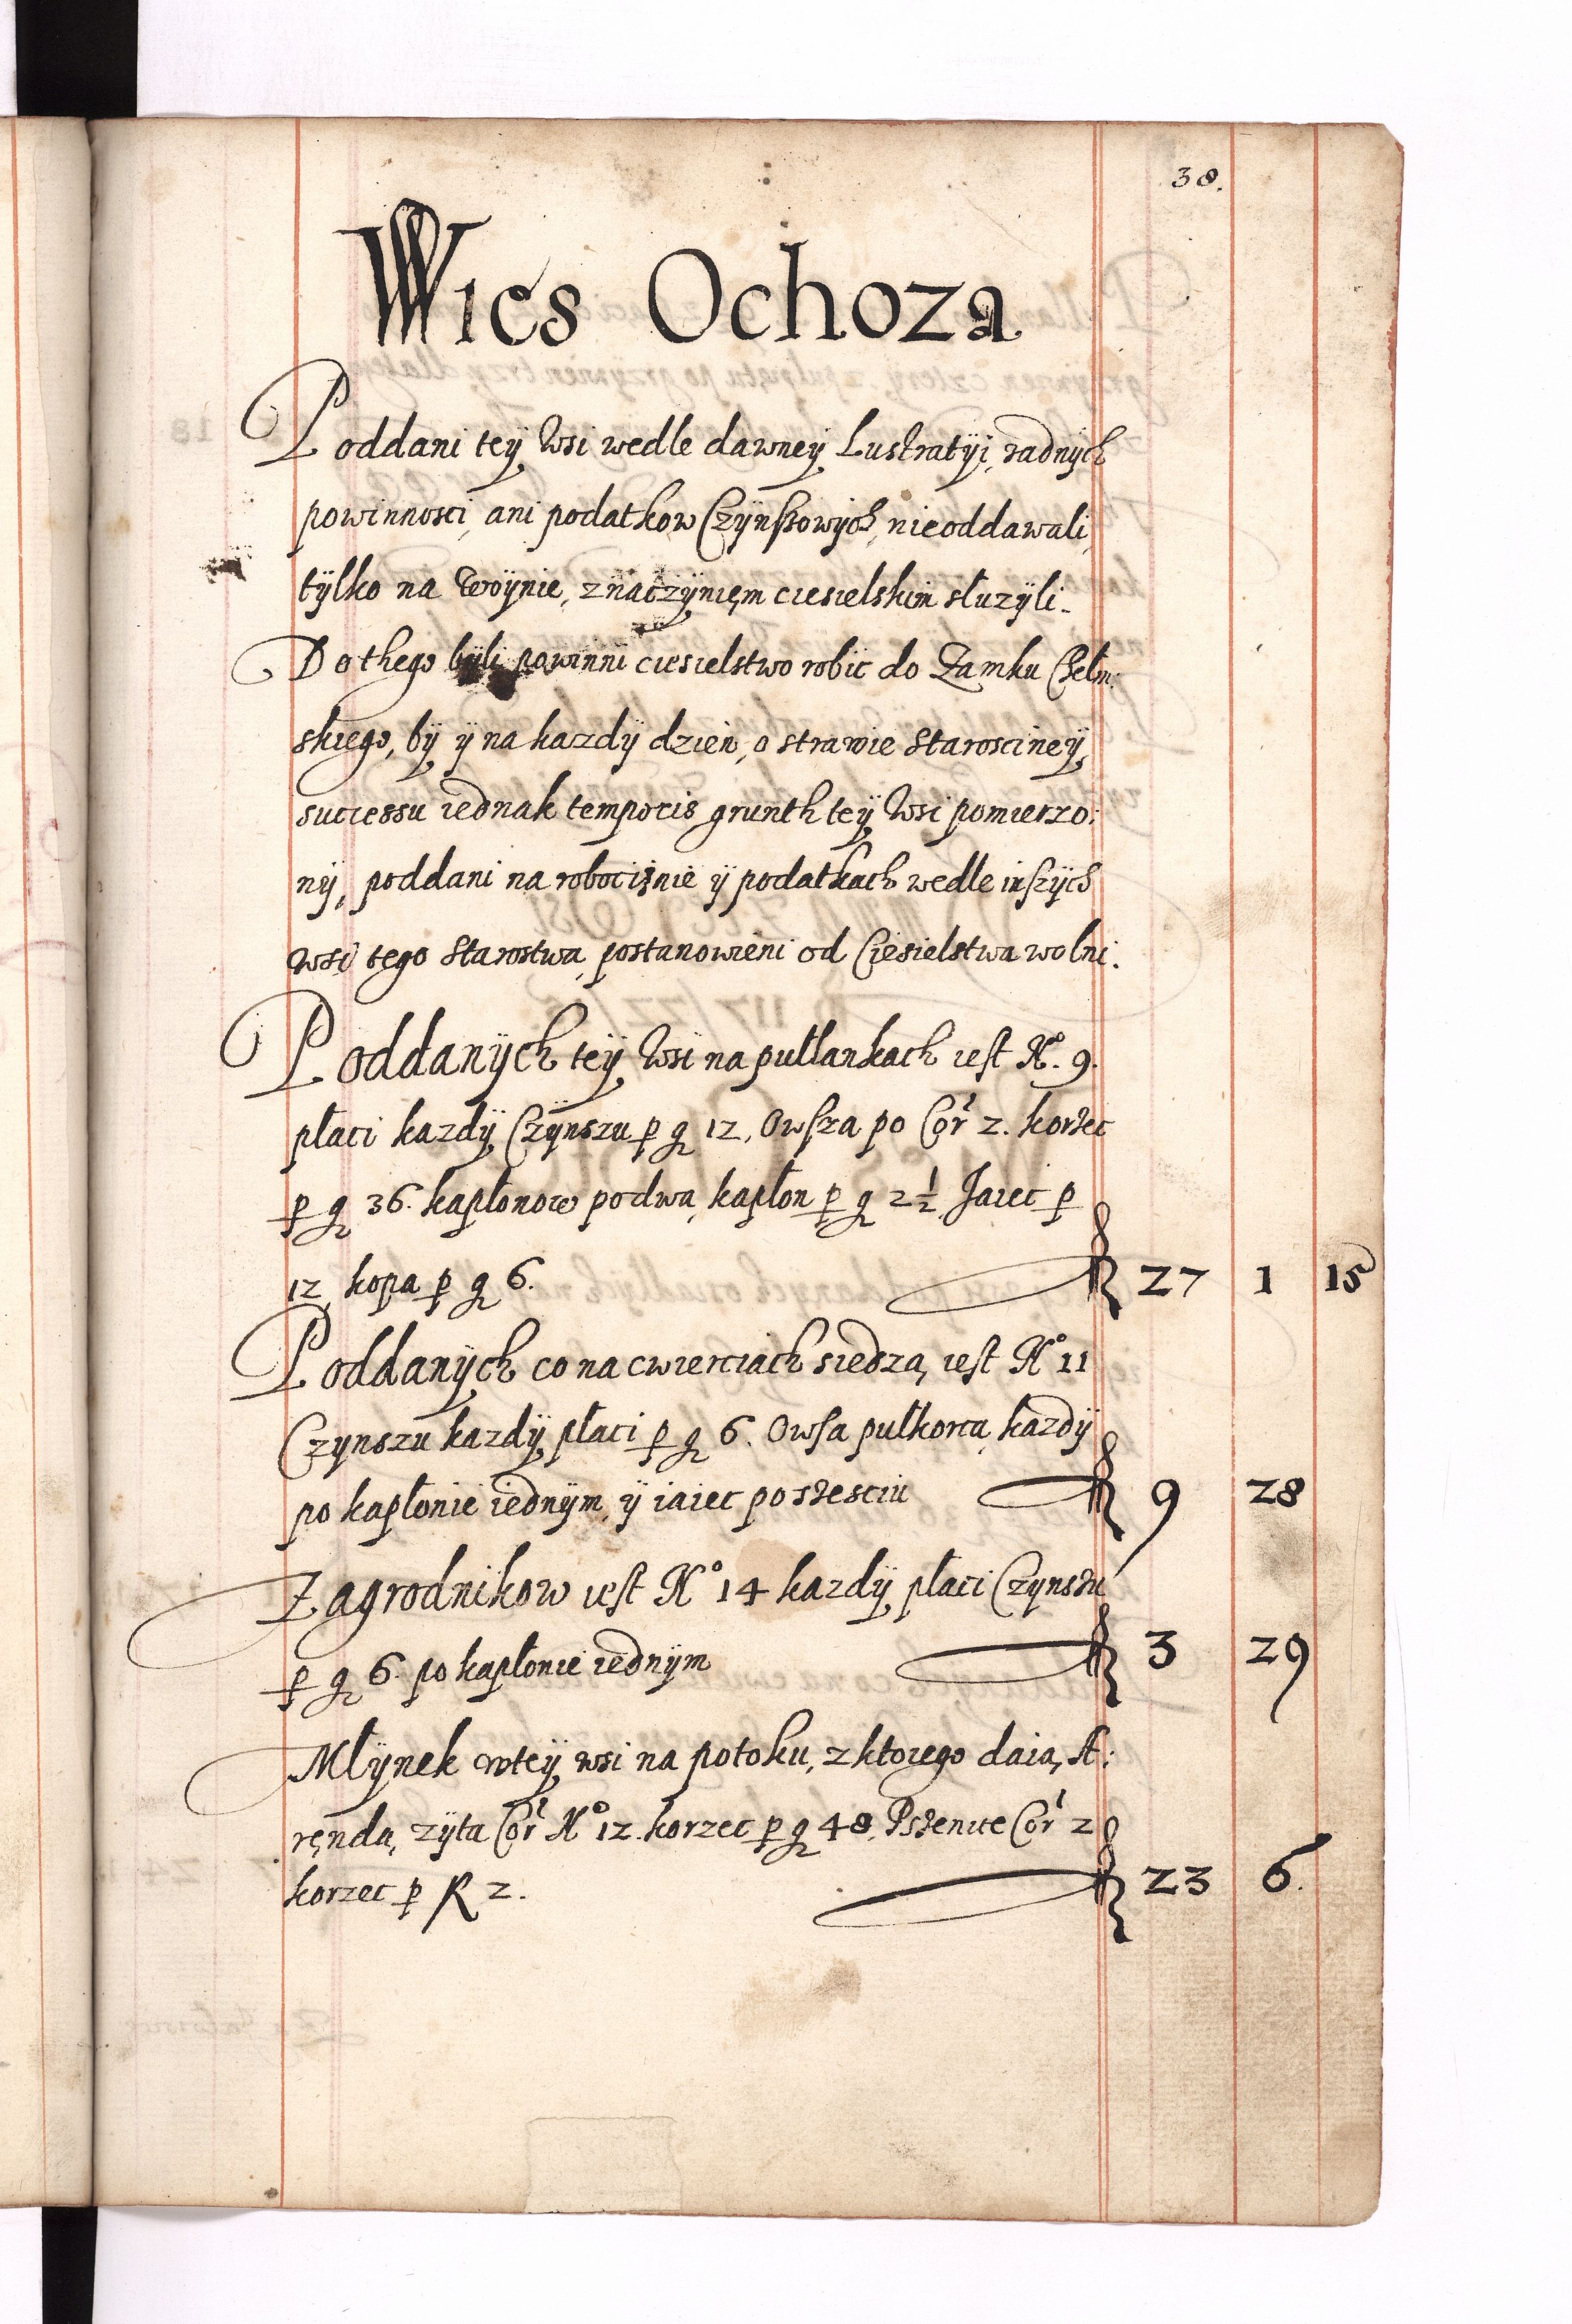 38.
Wies Ochoza
Poddani tey Wsi wedle dawney Lustratyi, zadnych
powinnosci, ani podatkow Czynszowych, nieoddawali,
tylko na Woynie, znaczyniem ciesielskim sluzyli.
Do thego byli powinni ciesielstwo robic do Zamku Chełm:
skiego, by y na kazdy dzien, o strawie Starosciney,
successu iednak temporis grunth tey Wsi pomierzo:
ny, poddani na robociznie y podatkach wedle inszych
wsi tego Starostwa, postanowieni od Ciesielstwa wolni.
Poddanych tey Wsi na pułłankach iest No. 9.
płaci kazdy Czynszu p g 12, Owsza po Cor 2. korzec
p g 36. kapłonow podwa, kapłon p g 2 1/2 Jaiec p
12, kopa p g 6. 27 1 15
Poddanych co na cwierciach siedzą, iest No 11
Czynszu kazdy płaci p g 6. Owsa pułkorca, kazdy
po kapłonie iednym, y iaiec poszesciu 9 28
Zagrodnikow iest No 14 kazdy płaci Czynszu
p g 6. po kapłonie iednym 3 29
Młynek wtey wsi na potoku, z ktorego daią, A:
rendą, zyta Cor No 12. korzec p g 48, Pszenice Cor 2
korzec p R 2. 23 6.